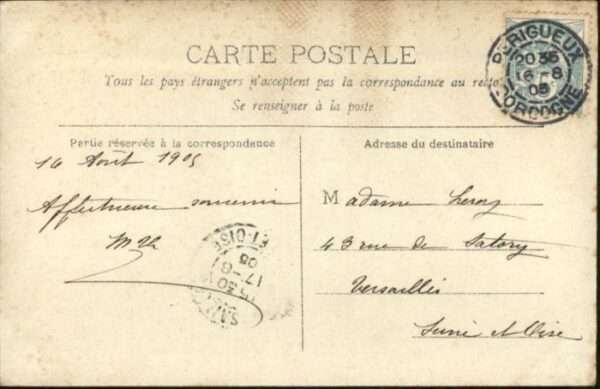 CARTE POSTALE
Tous les pays étrangers n'acceptent pas la correspondance au recto
Se renseigner à la poste
Partie réservée à la correspondance
Adresse du destinataire
PERIGUEUX
20 35
16-8
05
DORDOGNE
5
16 Août 1905
Affectueux souvenir
Madame Leroy
43 rue de Satory
Versailles
Seine et Oise
ET-OISE
05
17-8
30